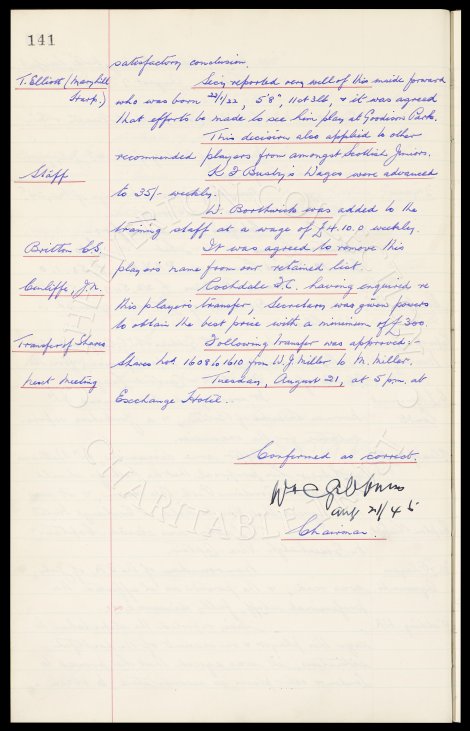 141
satisfactory conclusion.
T. Elliott (Maryhill Harp.)
Secy reported very well of this inside forward
who was born 22/1/22, 5'8", 11st 2lb, & it was agreed
that efforts be made to see him play at Goodison Park.
This decision also applied to other
recommended players from amongst Scottish Juniors.
Staff
K I Busby's Wages were advanced
to 35/- weekly.
W. Borthwick was added to the
training staff at a wage of £4.10.0 weekly.
Britton C.S.
It was agreed to remove this
player's name from our retained list.
Cunliffe, J.N.
Rochdale F.C. having enquired re
this player's transfer, Secretary was given powers
to obtain the best price with a minimum of £300.
Transfer of Shares
Following transfer was approved:-
Shares Nos 1608 to 1610 from W.J. Miller to M. Miller.
Next Meeting
Tuesday, August 21, at 5pm. at
Exchange Hotel.
Confirmed as correct.
W C Gibbins
Aug 21/45
Chairman.
CHARITABLE